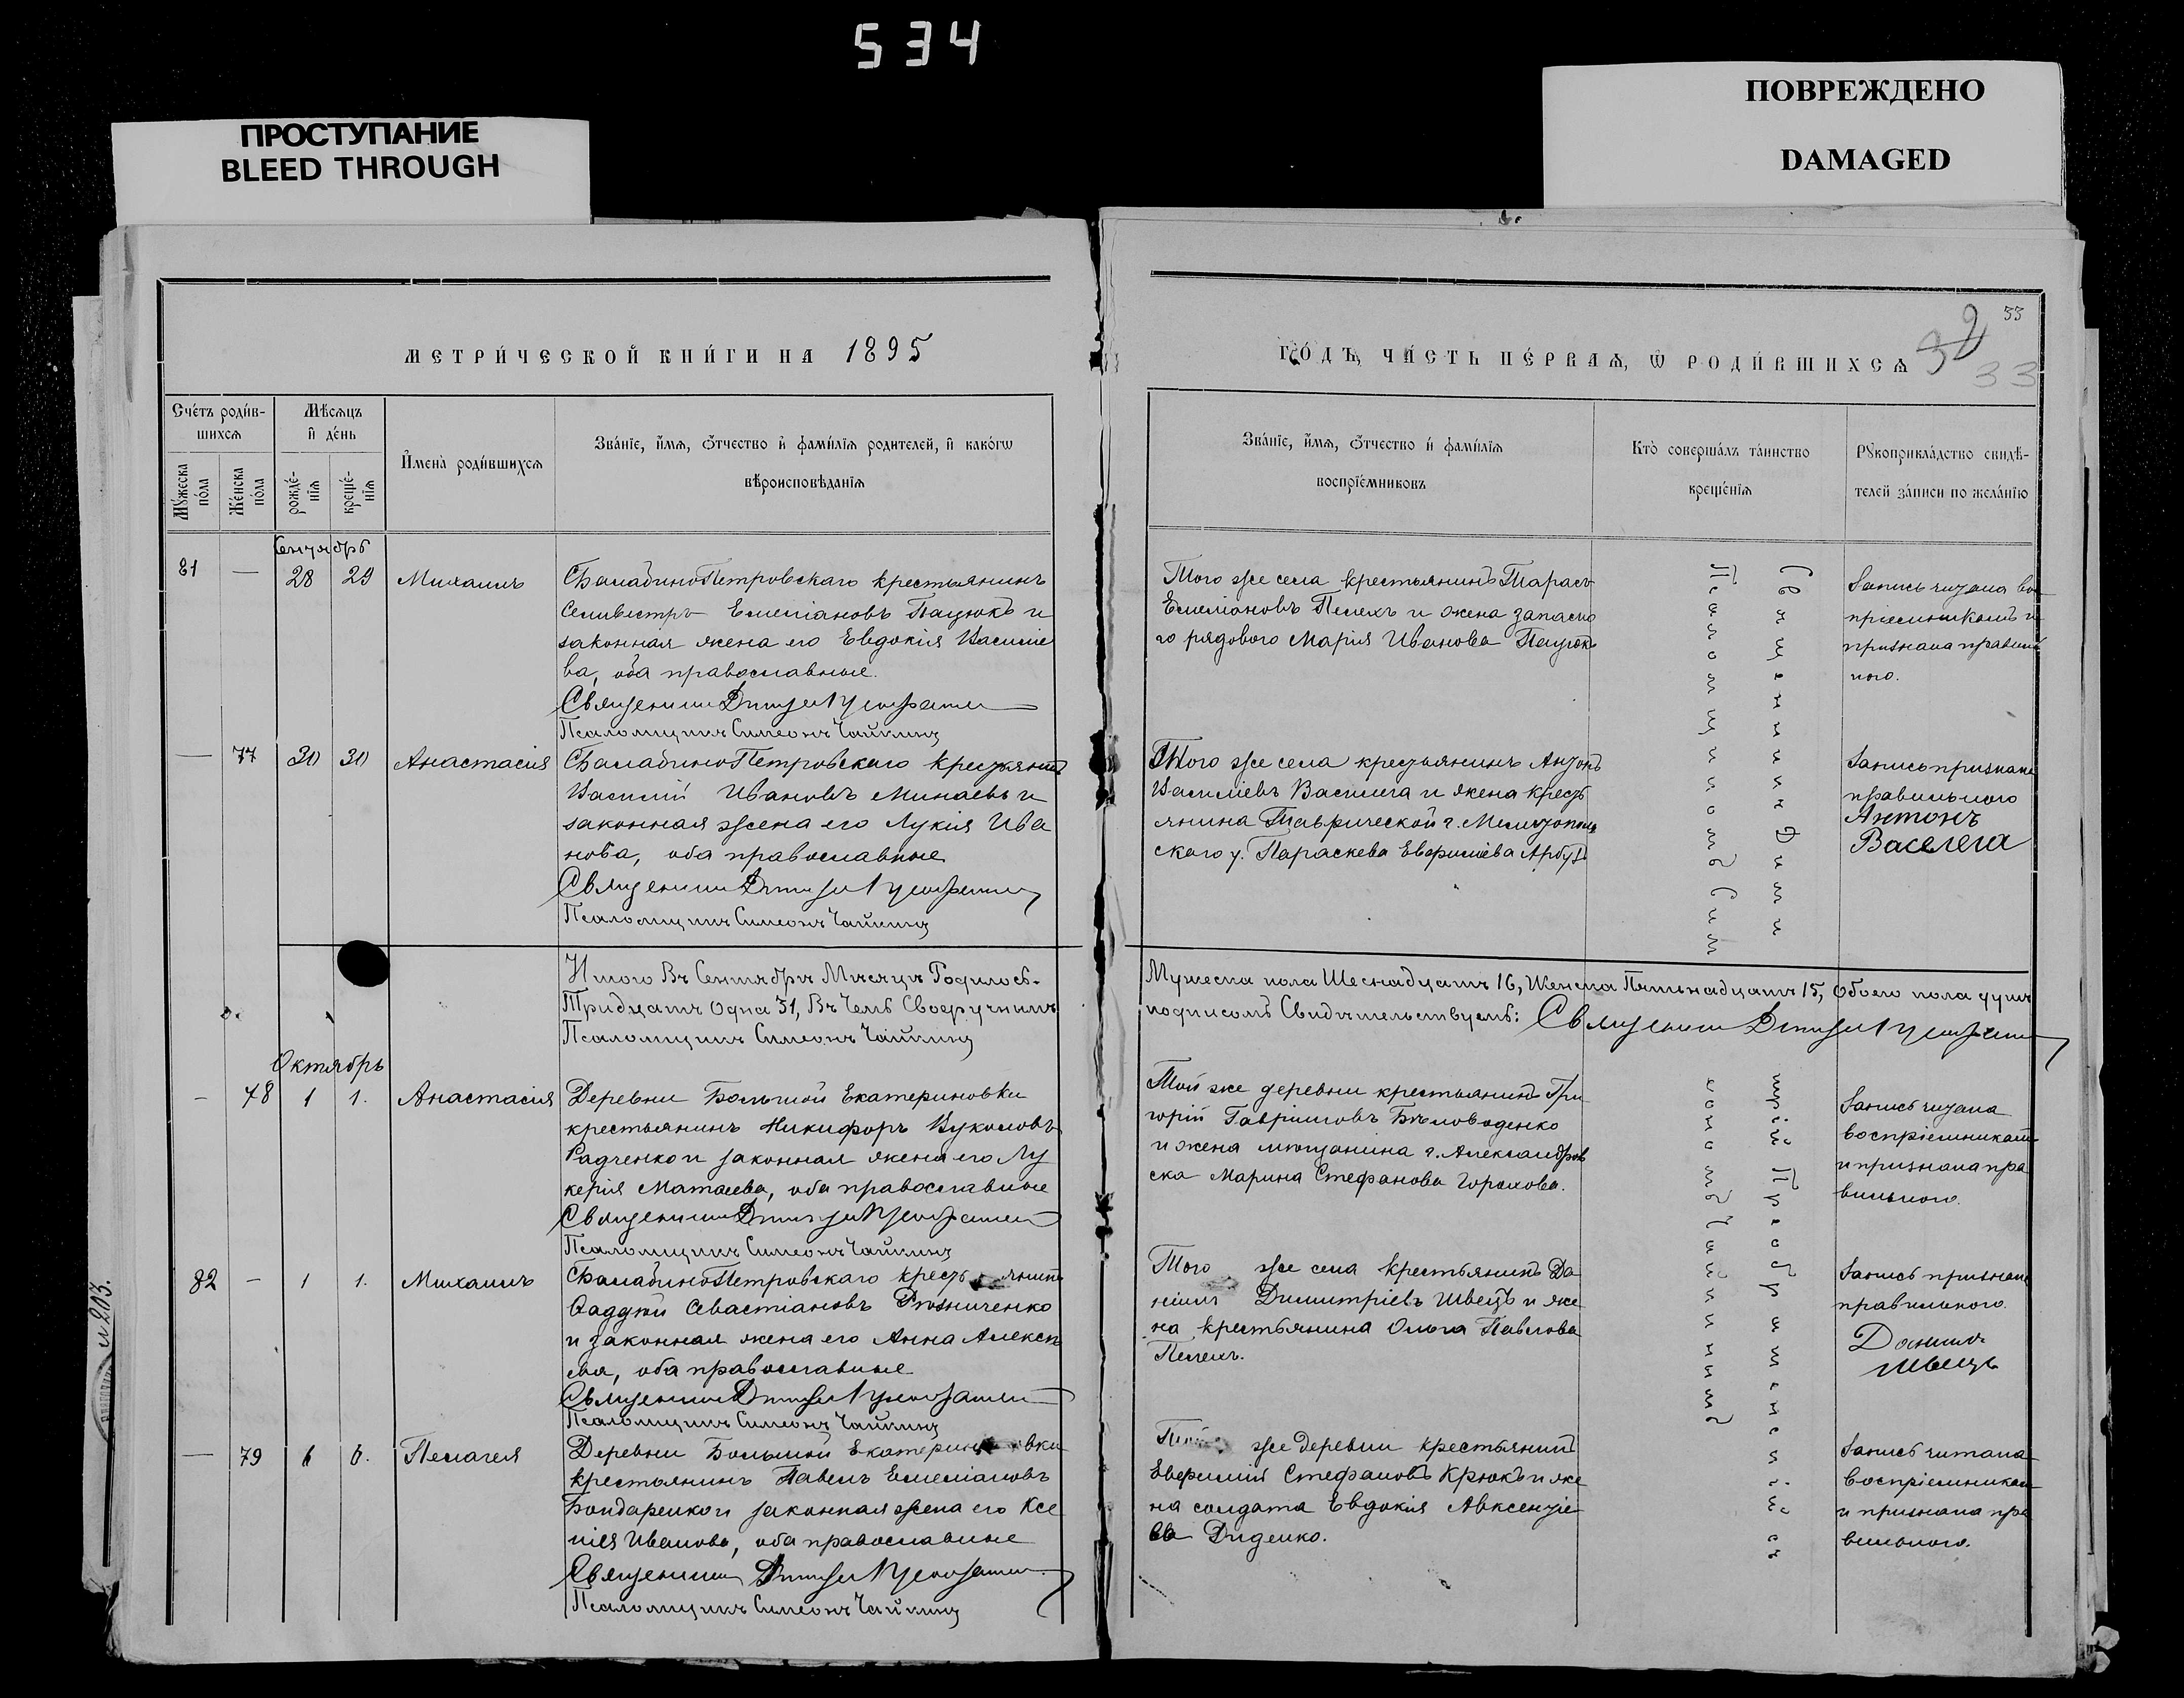 534
ПРОСТУПАНИЕ
BLEED THROUGH
ПОВРЕЖДЕНО
DAMAGED
33
32
33
МЕТРИ́ЧЕСКОЙ КНИ́ГИ НА 1895
ГО́ДЪ, ЧА́СТЬ ПЕ́РВАѦ, Ѿ РОДИ́ВШИХСѦ
Сче́тъ роди́в-
шихсѧ
Мꙋ́жеска по́ла
Же́нска по́ла
Мѣ́сѧцъ
и҆ де́нь
рожде́-
нїѧ
креще́-
нїѧ
И҆мена̀ роди́вшихсѧ
Зва́нїе, и҆́мѧ, ѻ҆́тчество и҆ фами́лїѧ родителей, и҆ како́гѡ
вѣроисповѣ́данїѧ
Зва́нїе, и҆́мѧ, ѻ҆́тчество и҆ фами́лїѧ
воспрїе́мниковъ
Кто̀ соверша́лъ та́инство
креще́нїѧ
Рꙋкоприкла́дство свидѣ́-
телей за́писи по жела́нїю
Сентябрь
81 — 28 29 Михаилъ
С. БалабиноПетровскаго крестьянинъ
Селивестръ Емелiановъ Пацюкъ и
законная жена его Евдокiя Василiе
ва, оба православные.
Священникъ
Псаломщикъ Симеонъ Чайкинъ
Того же села крестьянинъ Тарасъ
Емелiановъ Пелехъ и жена запасно
го рядового Марiя Иванова Пацюкъ
Запись читана вос
прiемникомъ и
признана правиль
ною.
— 77 30 30 Анастасiя
С. БалабиноПетровскаго крестьянинъ
Василiй Ивановъ Минаевъ и
законная жена его Лукiя Ива
нова, оба православные
Священникъ
Псаломщикъ Симеонъ Чайкинъ
Того же села крестьянинъ Антонъ
Василiевъ Василега и жена кресть
янина Таврической г. Мелитополь
скаго у. Параскева Евфимiева
Запись признана
правильного
Антонъ
Васелега
Итого Въ Сентябрѣ Мѣсяцѣ Родилось
Тридцать Одна 31, Въ Чемъ Своеручнымъ
Псаломщикъ Симеонъ Чайкинъ
Мужеска пола Шеснадцать 16, Женска Пятьнадцать 15, Обоего пола душъ
подписомъ Свидѣтельствуемъ: Священникъ
Октябрь
— 78 1 1. Анастасiя
Деревни Большой Екатериновки
крестьянинъ Никифоръ Вуколовъ
Радченко и законная жена его Лу
керiя Матѳеева, оба православные
Священникъ
Псаломщикъ Симеонъ Чайкинъ
Той же деревни крестьянинъ Гри
горiй Гаврiиловъ Бѣловоденко
и жена мѣщанина г. Александров
ска Марина Стефанова Горохова.
Запись читана
воспрiемникамъ
и признана пра
вильного.
82 — 1 1. Михаилъ
С. БалабиноПетровскаго крестьянинъ
Ѳаддей Севастiановъ Рѣзниченко
и законная жена его Анна Алексѣ
ева, оба православные
Священникъ
Псаломщикъ Симеонъ Чайкинъ
Того же села крестьянинъ Да
нiилъ Димитрiевъ Швецъ и же
на крестьянина Ольга Павлова
Пелехъ.
Запись признана
правильного.
Данило
Швецъ
— 79 6 6. Пелагея
Деревни Большой Екатериновки
крестьянинъ Павелъ Емелiановъ
Бондаренко и законная жена его Ксе
нiя Иванова, оба православные
Священникъ
Псаломщикъ Симеонъ Чайкинъ
Той же деревни крестьянинъ
Евфимiй Стефановъ Крюкъ и же
на солдата Евдокiя Авксентiе
ва Диденко.
Запись читана
воспрiемникам
и признана пра
вильного.